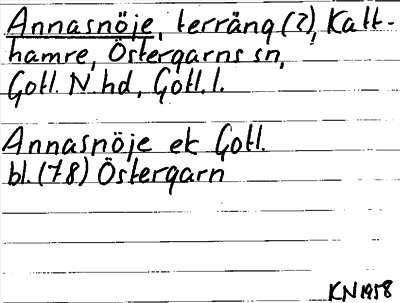 Annasnöje, terräng (?), Katt-
hamre, Östergarns sn,
Gotl. N. hd, Gotl. l.
Annasnöje ek Gotl.
bl. (78) Östergarn
KN 1958